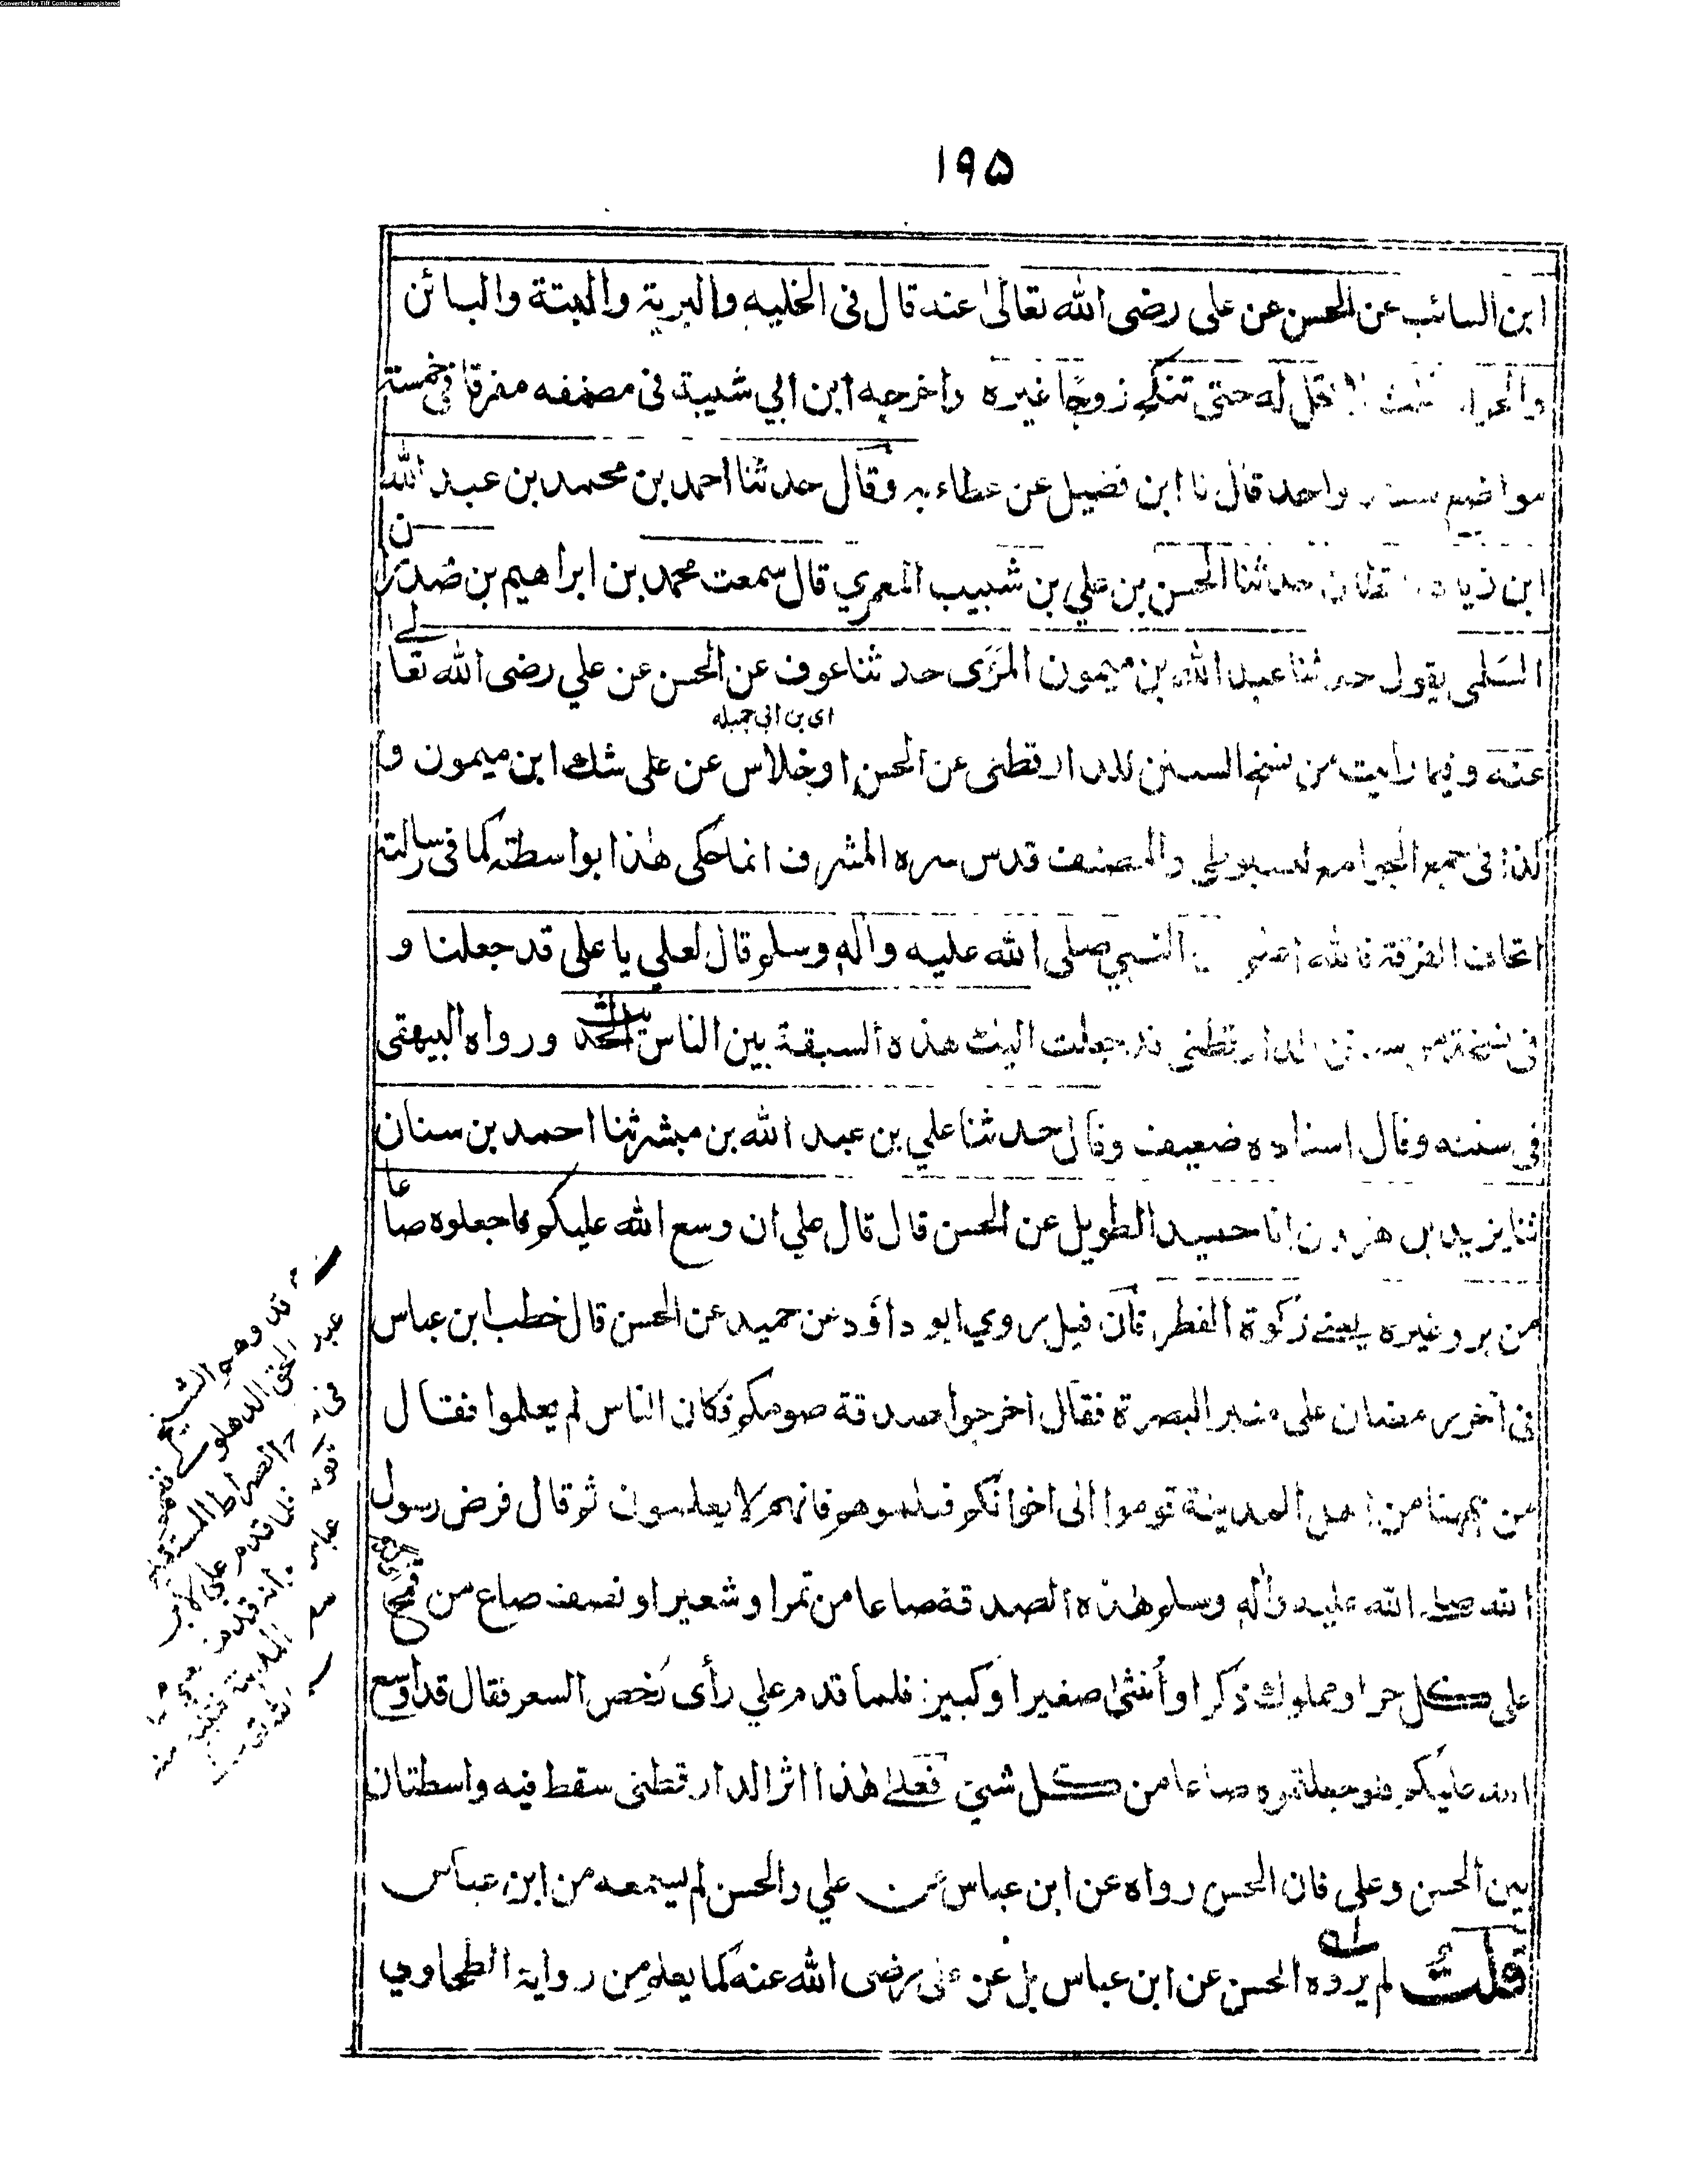 Converted by Tiff Combine - unregistered
۱۹۵
ابن السائب عن الحسن عن علی رضی الله تعالیٰ عنه قال فی الخلیه والبریة والبتة والبائن
والحرام ثلث لا تحل له حتی تنکح زوجًا غیره واخرجه ابن ابي شیبة فی مصنفه مفرقا فی خمسة
مواضع بسند واحد قال نا ابن فضیل عن عطاء به وقال حدثنا احمد بن محمد بن عبد الله
ابن زیاد القطان حدثنا الحسن بن علي بن شبیب المعمري قال سمعت محمد بن ابراهیم بن صدران
السلمی یقول حدثنا عبد الله بن میمون المرَئی حدثنا عوف عن الحسن عن علي رضی الله تعالے
ای بن ابی جمیله
عنه وفیما رایت من نسخ السنن للدارقطنی عن الحسن او خلاس عن علی شك ابن میمون و
لذا فی جمع الجوامع للسیوطي والمصنف قدس سره المشرف انما حکی هٰذا بواسطته کما فی رسالته
اتحاف الفرقة فالله اعلم ان النبي صلی الله علیه واٰله وسلم قال لعلي یا علی قد جعلنا و
فی نسخة من سنن الدارقطنی قد جعلت الیك هذه السبقة بین الناس الحدیث ورواه البیهقی
فی سننه وقال اسناده ضعیف وقال حدثنا علي بن عبد الله بن مبشر ثنا احمد بن سنان
ثنا یزید بن هرون انا حمید الطویل عن الحسن قال قال علي ان وسع الله علیکم فاجعلوه صاعا
من بر وغیره یعنے زکوة الفطر فان قیل روي ابو داؤد عن حمید عن الحسن قال خطب ابن عباس
فی اٰخر رمضان علی منبر البصرة فقال اخرجوا صدقة صومکم فکان الناس لم یعلموا فقال
من ههنا من اهل المدینة قوموا الی اخوانکم فعلموهم فانهم لا یعلمون ثم قال فرض رسول
الله صلی الله علیه واٰله وسلم هٰذه الصدقة صاعا من تمر او شعیر او نصف صاع من قمح
علی کل حر او مملوك ذکر او اُنثی صغیر او کبیر فلما قدم علي رأی رُخص السعر فقال قد اوسع
الله علیکم فلو جعلتموه صاعا من کل شيئ فعلے هٰذا اثر الدارقطنی سقط فیه واسطتان
بین الحسن وعلی فان الحسن رواه عن ابن عباس عن علي والحسن لم یسمعه من ابن عباس
قلتُ لم یروه الحسن عن ابن عباس بل عن علی رضی الله عنه کما یعلم من روایة الطحاوي
وهو الشیخ
عبد الحق الدهلوی
الصراط المستقیم
فلما قدم علي